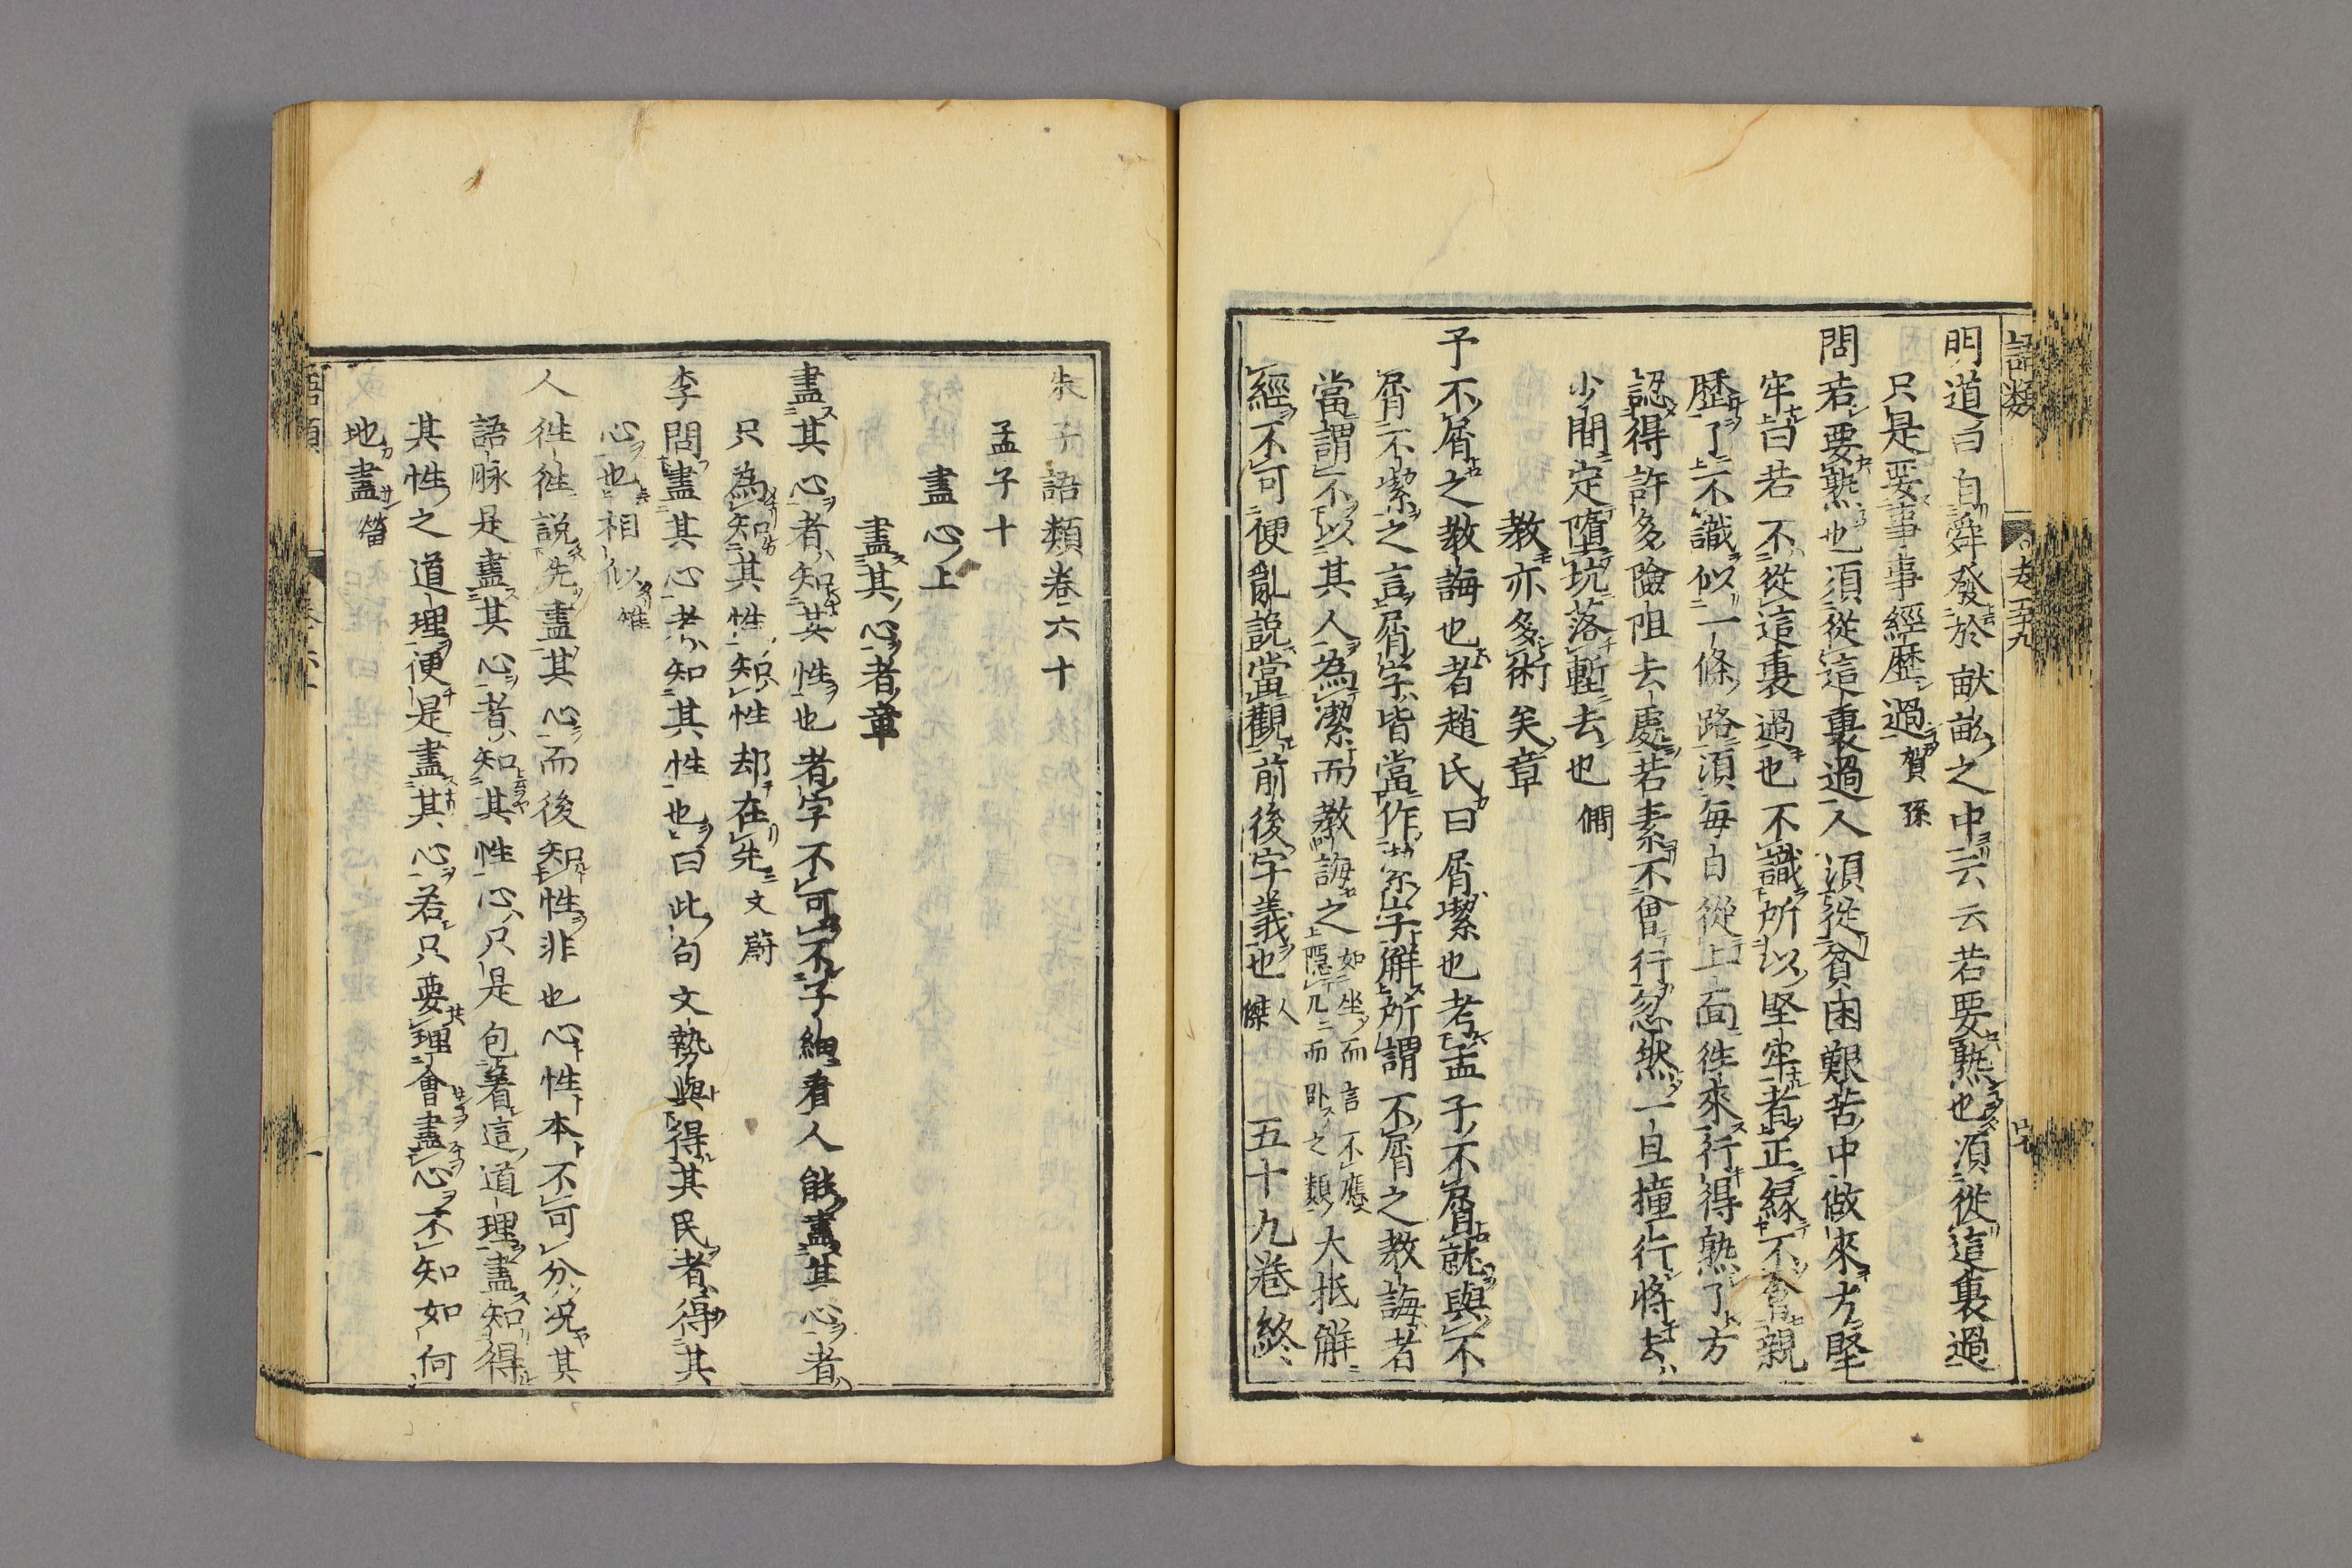 語類 卷五十九
明道曰自舜發於畎畝之中云云若要熟也須從這裏過
只是要事事經歷過 賀孫
問若要熟也須從這裏過人須從貧困艱苦中做來方堅
牢曰若不從這裏過也不識所以堅牢者正緣不會親
歷了不識似一條路須每日從上面往來行得熟了方
認得許多險阻去處若素不曾行忽然一旦撞行將去
少間定墮坑落塹去也 僩
教亦多術矣章
予不屑之教誨也者趙氏曰屑潔也考孟子不屑就與不
屑不潔之言屑字皆當作潔字解所謂不屑之教誨者
當謂不以其人為潔而教誨之如坐而言不應隱几而卧之類大抵解
經不可便亂說當觀前後字義也 人傑 五十九卷終
朱子語類卷六十
孟子十
盡心上
盡其心者章
盡其心者知其性也者字不可不子細看人能盡其心者
只為知其性知性却在先 文蔚
李問盡其心者知其性也曰此句文勢與得其民者得其
心也相似 雉
人往往說先盡其心而後知性非也心性本不可分況其
語脉是盡其心者知其性心只是包著這道理盡知得
其性之道理便是盡其心若只要理會盡心不知如何
地盡 㽦
語類